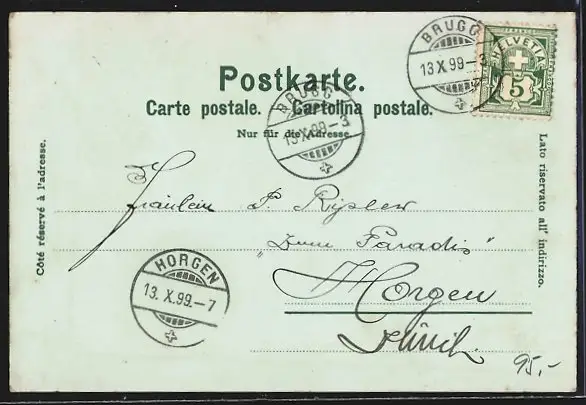 BRUGG
13 X 99 - 3
HELVETIA
5
Postkarte.
Carte postale. Cartolina postale.
Nur für die Adresse.
BRUGG
13 X 99 - 3
Côté réservé à l'adresse.
Lato riservato all' indirizzo.
Fräulein P.
"Zum Paradis"
HORGEN
13. X. 99. - 7
Horgen
Zürich.
95,-